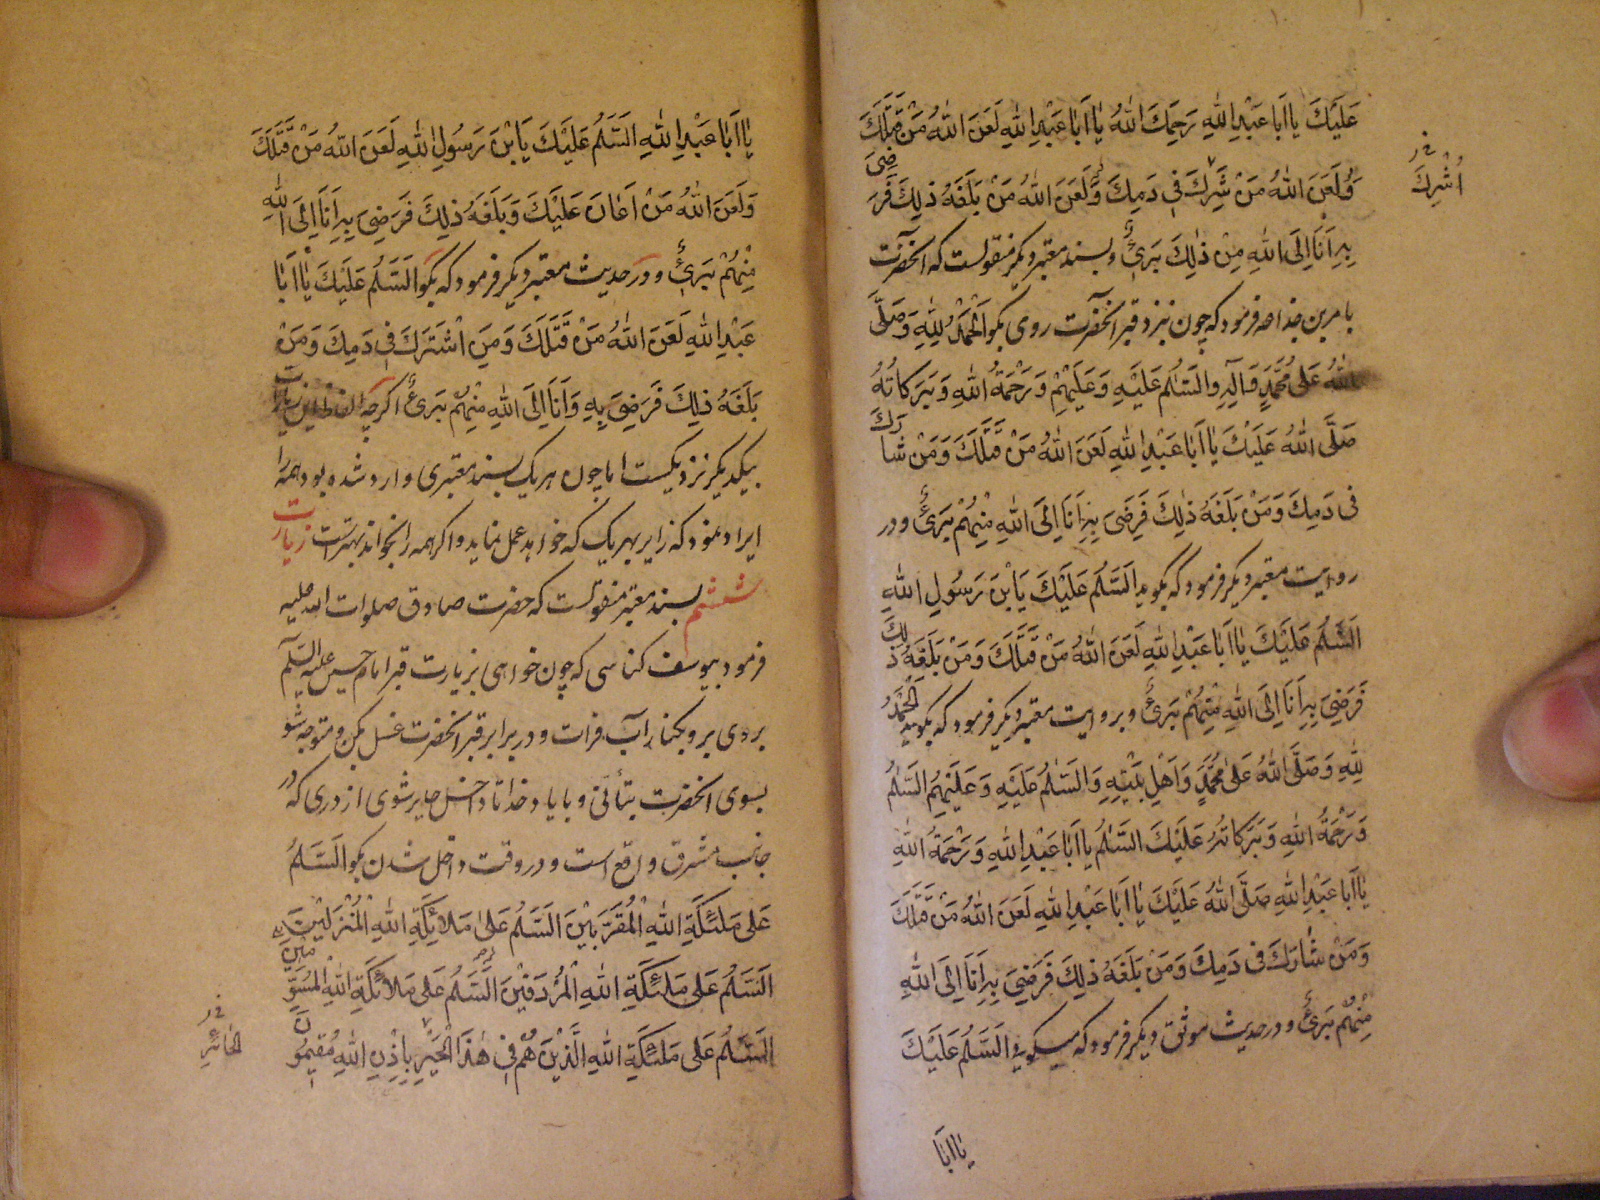 عَلَيْكَ يا اَبا عَبْدِ اللهِ رَحِمَكَ اللهُ يٰا اَبٰا عَبْدِ اللهِ لَعَنَ اللهُ مَنْ قَتَلَكَ
وَ لَعَنَ اللهُ مَنْ شَرِكَ فِي دَمِكَ وَ لَعَنَ اللهُ مَنْ بَلَغَهُ ذٰلِكَ فَرَضِىَ
اُشْرِكَ
بِهِ اَنَا اِلَى اللهِ مِنْ ذٰلِكَ بَرِئٌ و بسند معتبر ديكر منقولست كه انحضرت
با فرمود كه چون نزد قبر انحضرت روى بكو اَلْحَمْدُ لِلّٰهِ وَ صَلَّى
اللهُ عَلىٰ مُحَمَّدٍ وَ اٰلِهِ وَ السَّلٰمُ عَلَيْهِ وَ عَلَيْهِمْ وَ رَحْمَةُ اللهِ وَ بَرَكاتُهُ
صَلَّى اللهُ عَلَيْكَ يٰا اَبٰا عَبْدِ اللهِ لَعَنَ اللهُ مَنْ قَتَلَكَ وَ مَنْ شٰارَكَ
فى دَمِكَ وَ مَنْ بَلَغَهُ ذٰلِكَ فَرَضِىَ بِهِ اَنَا اِلَى اللهِ مِنْهُمْ بَرِئٌ و در
روايت معتبر ديكر فرمود كه بكويد اَلسَّلٰمُ عَلَيْكَ يَابْنَ رَسُولِ اللهِ
اَلسَّلٰمُ عَلَيْكَ يٰا اَبٰا عَبْدِ اللهِ لَعَنَ اللهُ مَنْ قَتَلَكَ وَ مَنْ بَلَغَهُ ذٰلِكَ
فَرَضِىَ بِهِ اَنَا اِلَى اللهِ مِنْهُمْ بَرِئٌ و بروايت معتبر ديكر فرمود كه بكويد اَلْحَمْدُ
لِلّٰهِ وَ صَلَّى اللهُ عَلىٰ مُحَمَّدٍ وَ اَهْلِ بَيْتِهِ وَ السَّلٰمُ عَلَيْهِ وَ عَلَيْهِمُ السَّلٰمُ
وَ رَحْمَةُ اللهِ وَ بَرَكاتُهُ عَلَيْكَ السَّلٰمُ يا اَبا عَبْدِ اللهِ وَ رَحْمَةُ اللهِ
يٰا اَبا عَبْدِ اللهِ صَلَّى اللهُ عَلَيْكَ يٰا اَبٰا عَبْدِ اللهِ لَعَنَ اللهُ مَنْ قَتَلَكَ
وَ مَنْ شٰارَكَ فى دَمِكَ وَ مَنْ بَلَغَهُ ذٰلِكَ فَرَضِىَ بِهِ اَنَا اِلَى اللهِ
مِنْهُمْ بَرِئٌ و در حديث موثق ديكر فرمود كه ميكوئى اَلسَّلٰمُ عَلَيْكَ
يٰا اَبٰا
يٰا اَبٰا عَبْدِ اللهِ اَلسَّلٰمُ عَلَيْكَ يَابْنَ رَسُولِ اللهِ لَعَنَ اللهُ مَنْ قَتَلَكَ
وَ لَعَنَ اللهُ مَنْ اَعٰانَ عَلَيْكَ وَ بَلَغَهُ ذٰلِكَ فَرَضِىَ بِهِ اَنَا اِلَى اللهِ
مِنْهُمْ بَرِئٌ و در حديث معتبر ديكر فرمود كه بكو اَلسَّلٰمُ عَلَيْكَ يٰا اَبٰا
عَبْدِ اللهِ لَعَنَ اللهُ مَنْ قَتَلَكَ وَ مَنِ اشْتَرَكَ فِي دَمِكَ وَ مَنْ
بَلَغَهُ ذٰلِكَ فَرَضِىَ بِهِ وَ اَنَا اِلَى اللهِ مِنْهُمْ بَرِئٌ اكرچه الفاظ اين زيارات
بيكديكر نزديكست اما چون هر يك بسند معتبرى وارد شده بود همه را
ايراد نمود كه زاير بهر يك كه خواهد عمل نمايد و اكر همه را بخواند بهتر است زيارت
ششم بسند معتبر منقولست كه حضرت صادق صلوات الله عليه
فرمود بيوسف كناسى كه چون خواهى بزيارت قبر امام حسين عليه السلام
بروى برو بكنار آب فرات و در برابر قبر انحضرت غسل بكن و متوجه شو
بسوى انحضرت بتأنى و با ياد خدا تا داخل حاير شوى از درى كه در
جانب مشرق واقع است و در وقت داخل شدن بكو اَلسَّلٰمُ
عَلى مَلٰئِكَةِ اللهِ الْمُقَرَّبيْنَ اَلسَّلٰمُ عَلىٰ مَلائِكَةِ اللهِ الْمُنْزَلينَ
اَلسَّلٰمُ عَلى مَلٰئِكَةِ اللهِ الْمُرْدَفينَ اَلسَّلٰمُ عَلى مَلائِكَةِ اللهِ الْمُسَوِّمينَ
اَلسَّلٰمُ عَلى مَلٰئِكَةِ اللهِ الَّذينَ هُمْ فِي هٰذَا الْحَيْرِ بِاِذْنِ اللهِ مُقيمُونَ
الحٰائِرِ